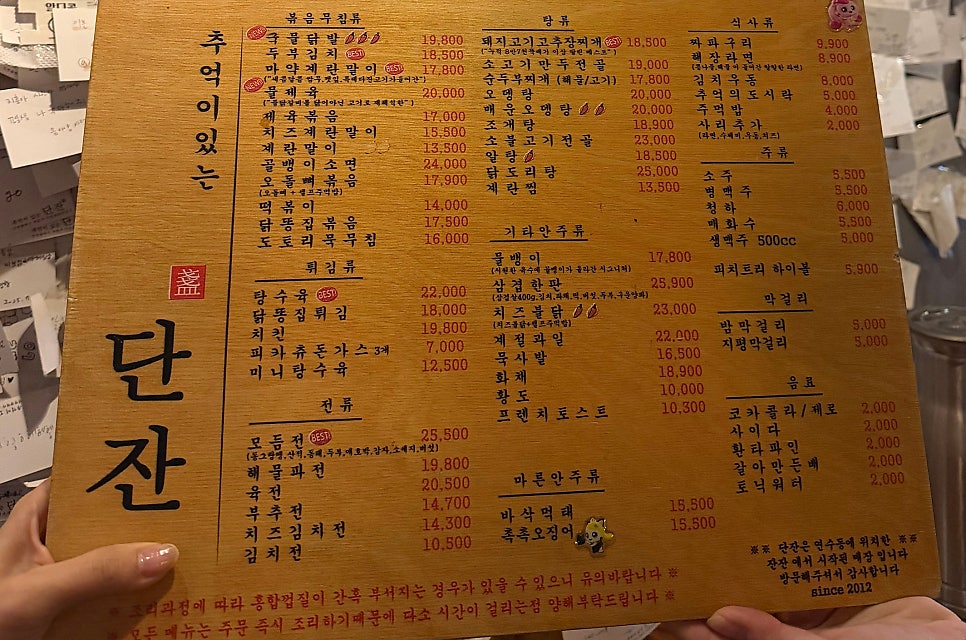 추억이있는
단잔
볶음무침류
NEW 국물닭발 19,800
두부김치 BEST! 18,500
마약계란말이 BEST! 17,800
NEW 물제육 20,000
제육볶음 17,000
치즈계란말이 15,500
계란말이 13,500
골뱅이소면 24,000
오돌뼈볶음 17,900
(오돌뼈 + 셀프주먹밥)
떡볶이 14,000
닭똥집볶음 17,500
도토리묵무침 16,000
튀김류
탕수육 BEST! 22,000
닭똥집튀김 18,000
치킨 19,800
피카츄돈가스 3개 7,000
미니탕수육 12,500
전류
모듬전 BEST! 25,500
(동그랑땡,산적,동태,두부,애호박,감자,소세지,버섯)
해물파전 19,800
육전 20,500
부추전 14,700
치즈김치전 14,300
김치전 10,500
탕류
돼지고기고추장찌개 BEST! 18,500
소고기만두전골 19,000
순두부찌개 (해물/고기) 17,800
오뎅탕 20,000
매운오뎅탕 20,000
조개탕 18,900
소불고기전골 23,000
알탕 18,500
닭도리탕 25,000
계란찜 13,500
기타안주류
물뱅이 17,800
(시원한 육수에 골뱅이가 올라간 시그니처)
삼겹한판 25,900
(삼겹살400g,김치,파채,떡,버섯,두부,구운양파)
치즈불닭 23,000
(치즈불닭+셀프주먹밥)
계절과일 22,000
묵사발 16,500
화채 18,900
황도 10,000
프렌치토스트 10,300
마른안주류
바삭먹태 15,500
촉촉오징어 15,500
식사류
짜파구리 9,900
해장라면 8,900
김치우동 8,000
추억의도시락 5,000
주먹밥 4,000
사리추가 2,000
(라면,수제비,우동,치즈)
주류
소주 5,500
병맥주 5,500
청하 6,000
매화수 5,500
생맥주 500cc 5,000
피치트리 하이볼 5,900
막걸리
밤막걸리 5,000
지평막걸리 5,000
음료
코카콜라/제로 2,000
사이다 2,000
환타파인 2,000
갈아만든배 2,000
토닉워터 2,000
※※ 단잔은 연수동에 위치한 ※※
잔잔 에서 시작된 매장 입니다
방문해주셔서 감사합니다
since 2012
※ 조리과정에 따라 홍합껍질이 간혹 부서지는 경우가 있을 수 있으니 유의바랍니다 ※
※ 모든 메뉴는 주문 즉시 조리하기때문에 다소 시간이 걸리는점 양해부탁드립니다 ※